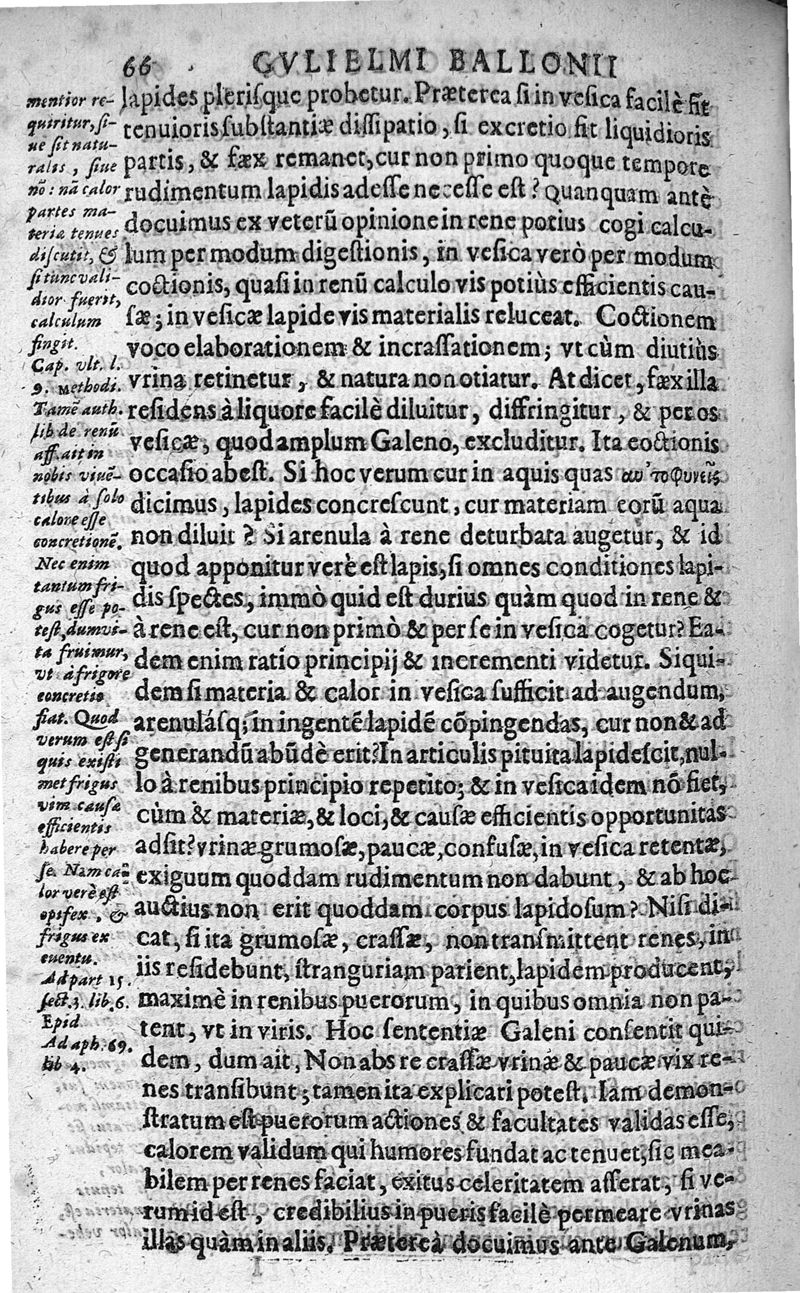 66 GVLIELMI BALLONII
lapides plerisque probetur. Præterea si in vesica facilè fit
tenuioris substantiæ dissipatio, si excretio fit liquidioris
partis, & fæx remanet, cur non primo quoque tempore
rudimentum lapidis adesse necesse est? Quanquam antè
docuimus ex veterū opinione in rene potius cogi calcu-
lum per modum digestionis, in vesica verò per modum
coctionis, quasi in renū calculo vis potiùs efficientis cau-
sæ; in vesicæ lapide vis materialis reluceat. Coctionem
voco elaborationem & incrassationem; vt cùm diutiùs
vrina retinetur, & natura non otiatur. At dicet, fæx illa
residens à liquore facilè diluitur, diffringitur, & per os
vesicæ, quod amplum Galeno, excluditur. Ita coctionis
occasio abest. Si hoc verum cur in aquis quas
dicimus, lapides concrescunt, cur materiam eorū aqua
non diluit? Si arenula à rene deturbata augetur, & id
quod apponitur verè est lapis, si omnes conditiones lapi-
dis spectes, immò quid est durius quàm quod in rene &
à rene est, cur non primò & per se in vesica cogetur? Ea-
dem enim ratio principij & incrementi videtur. Siqui-
dem si materia & calor in vesica sufficit ad augendum,
arenulásq; in ingentē lapidē cōpingendas, cur non & ad
generandū abūdè erit? In articulis pituita lapidescit, nul-
lo à renibus principio repetito; & in vesica idem nō fiet,
cùm & materiæ, & loci, & causæ efficientis opportunitas
adsit? vrinæ grumosæ, paucæ, confusæ, in vesica retentæ,
exiguum quoddam rudimentum non dabunt, & ab hoc
auctius non erit quoddam corpus lapidosum? Nisi di-
cat, si ita grumosæ, crassæ, non transmittent renes, in
iis residebunt, stranguriam parient, lapidem producent,
maximè in renibus puerorum, in quibus omnia non pa-
tent, vt in viris. Hoc sententiæ Galeni consentit qui-
dem, dum ait, Non abs re crassæ vrinæ & paucæ vix re-
nes transibunt; tamen ita explicari potest. Iam demon-
stratum est puerorum actiones & facultates validas esse,
calorem validum qui humores fundat ac tenuet, sic mea-
bilem per renes faciat, exitus celeritatem afferat, si ve-
rum id est, credibilius in pueris facilè permeare vrinas
illas quàm in aliis. Præterea docuimus ante Galenum,
mentior re-
quiritur, si-
ue sit natu-
ralis, siue
nō: nā calor
partes ma-
teria tenues
discutit, &
si tunc vali-
dior fuerit,
calculum
fingit.
Cap. vlt. l.
9. Methodi.
Tamē auth.
lib de renū
aff. ait in
nobis viuē-
tibus à solo
calore esse
concretionē.
Nec enim
tantum fri-
gus esse po-
test, dum vi-
ta fruimur,
vt à frigore
concretio
fiat. Quod
verum est si
quis existi
met frigus
vim causæ
efficientis
habere per
se. Nam ca-
lor verè est
opifex, &
frigus ex
euentu.
Ad part 15.
sect. 3. lib. 6.
Epid
Ad aph. 69.
lib 4.